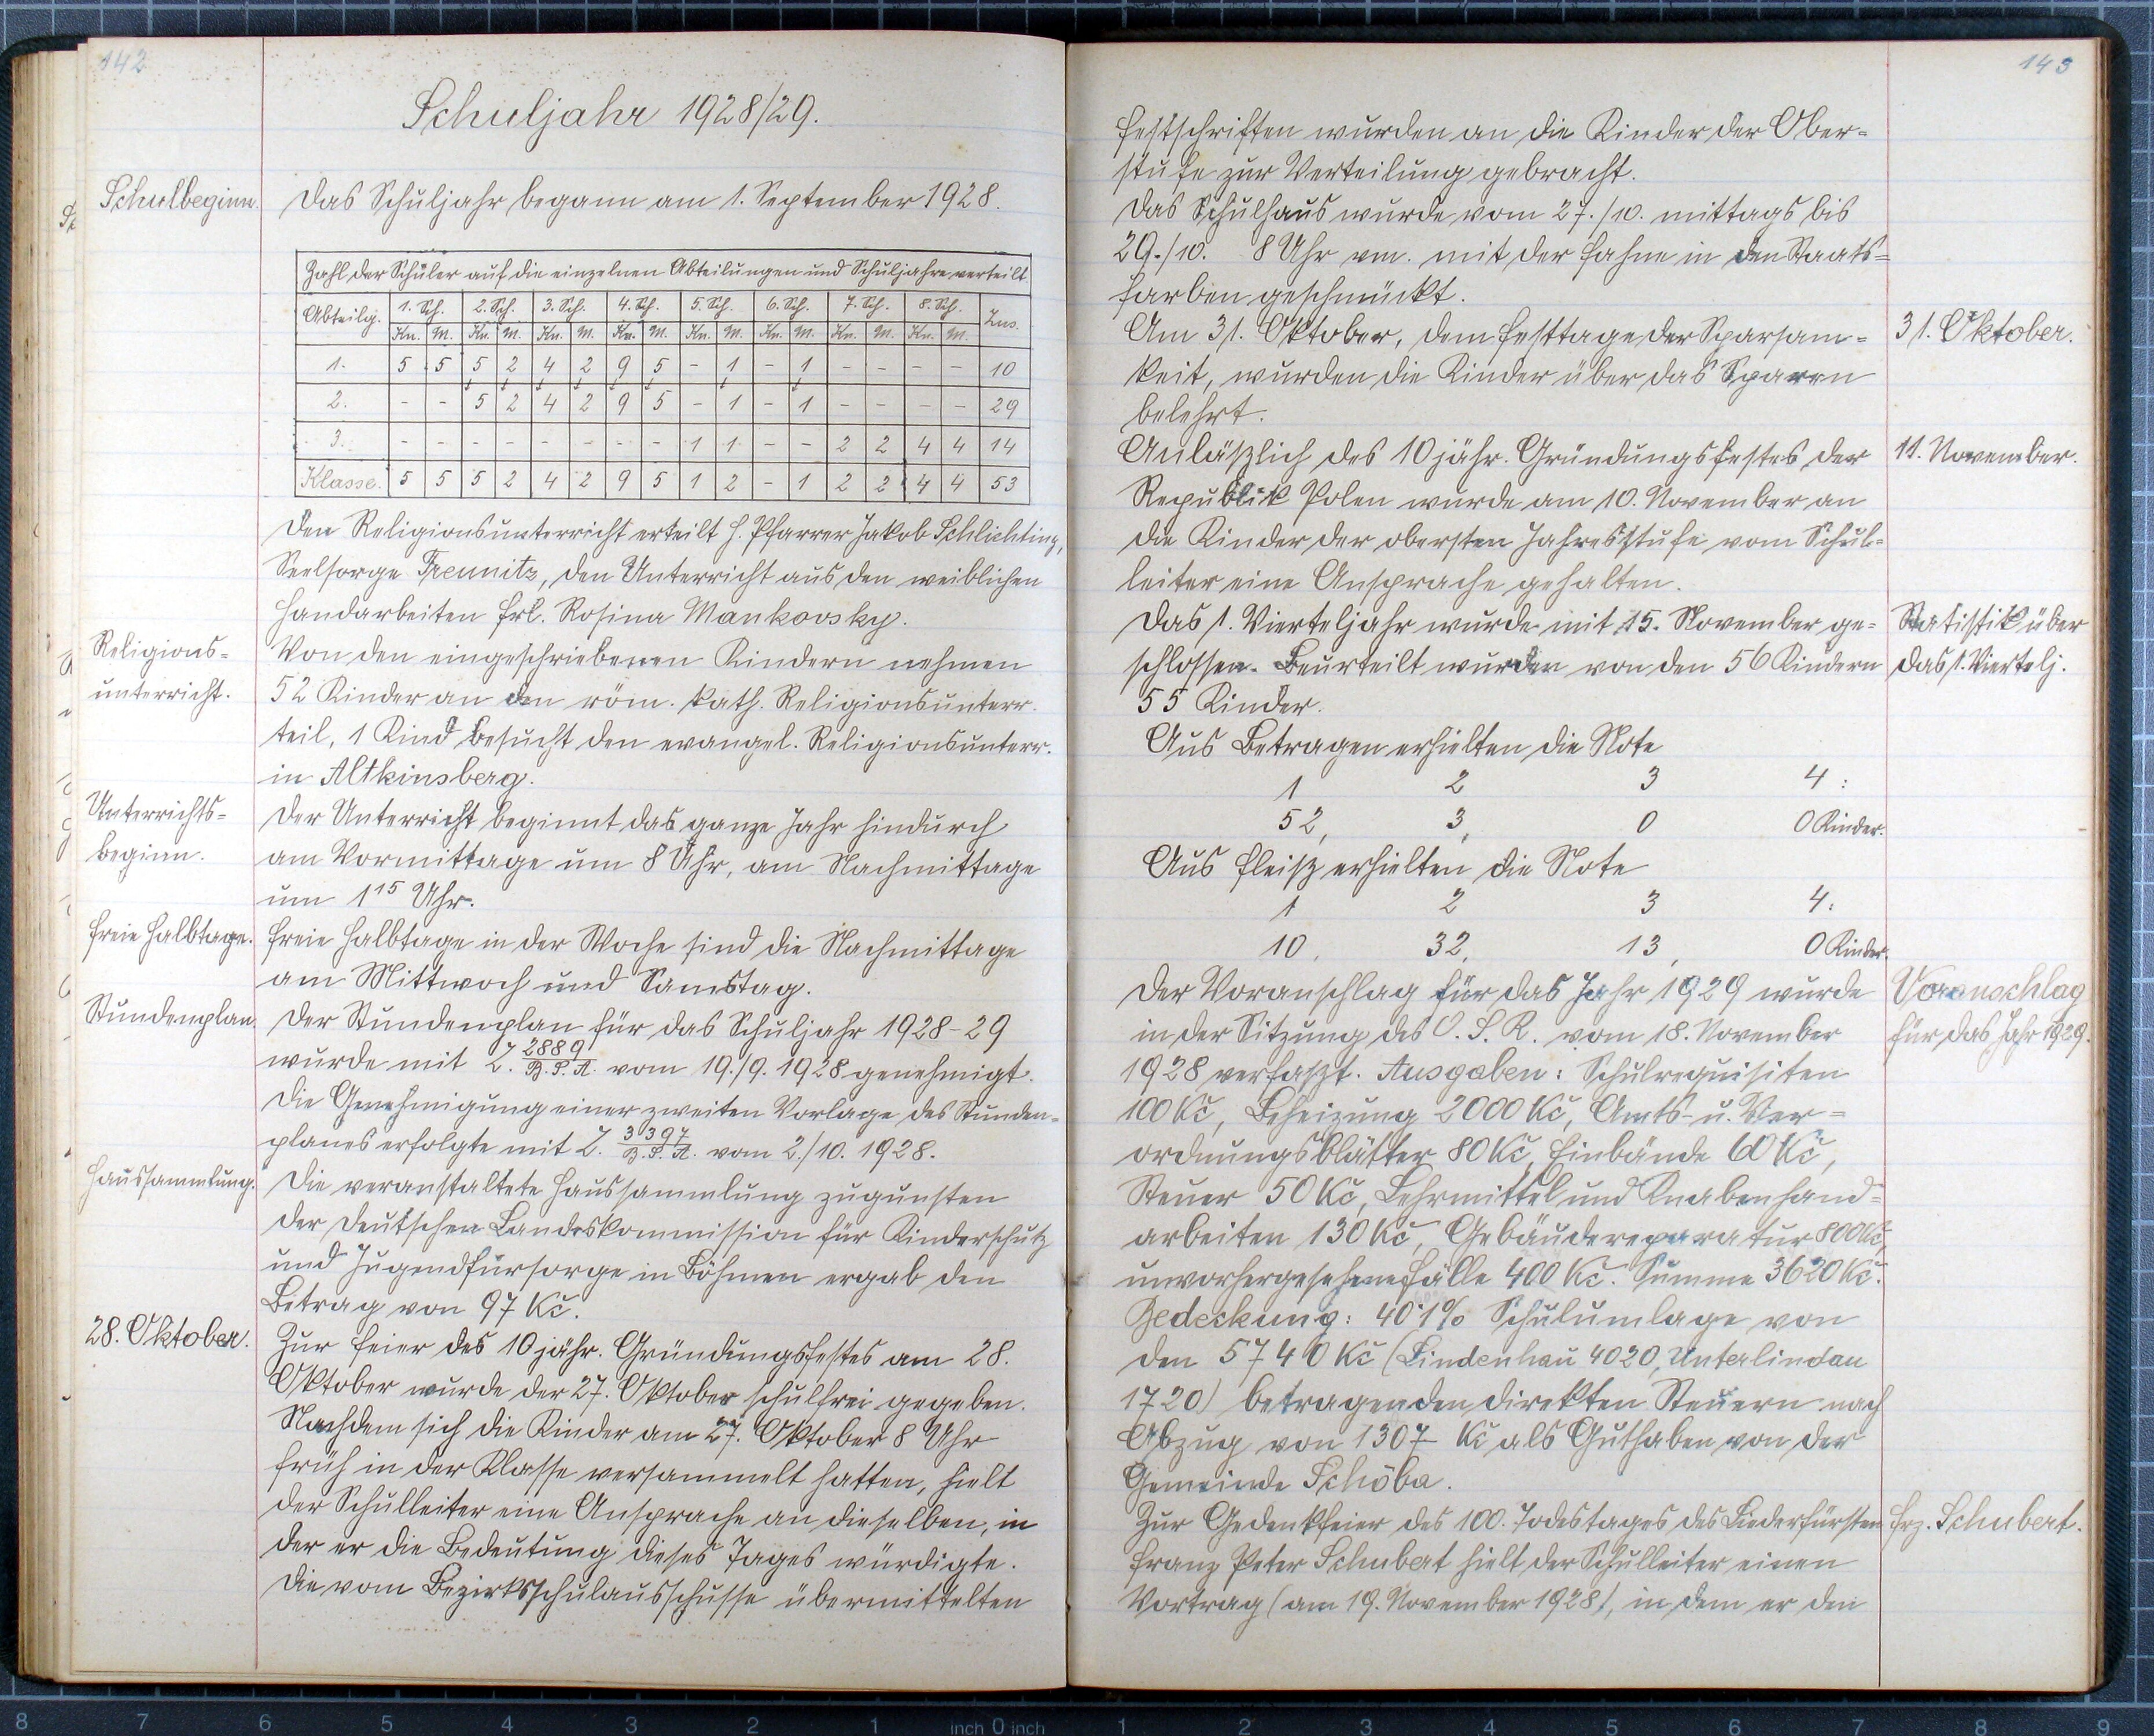 142
Schuljahr 1928/29.
Schulbeginn.
Das Schuljahr begann am 1. September 1928.
Zahl der Schüler auf die einzelnen Abteilungen und Schuljahre verteilt
Abteilg. 1. Sch. 2. Sch. 3. Sch. 4. Sch. 5. Sch. 6. Sch. 7. Sch. 8. Sch. Zus.
Kn. M. Kn. M. Kn. M. Kn. M. Kn. M. Kn. M. Kn. M. Kn. M.
1. 5 5 5 2 4 2 9 5 - 1 - 1 - - - - 10
2. - - 5 2 4 2 9 5 - 1 - 1 - - - - 29
3. - - - - - - - - 1 1 - - 2 2 4 4 14
Klasse. 5 5 5 2 4 2 9 5 1 2 - 1 2 2 4 4 53
Den Religionsunterricht erteilt H. Pfarrer Jakob Schlichting,
Seelsorge Treunitz, den Unterricht aus den weiblichen
Handarbeiten Frl. Rosina Mankovsky.
Religions-
unterricht.
Von den eingeschriebenen Kindern nehmen
52 Kinder an den röm. kath. Religionsunterr.
teil, 1 Kind besucht den evangel. Religionsunterr.
in Altkinsberg.
Unterrichts-
beginn.
Der Unterricht beginnt das ganze Jahr hindurch
am Vormittage um 8 Uhr, am Nachmittage
um 1 15 Uhr.
Freie Halbtage.
Freie Halbtage in der Woche sind die Nachmittage
am Mittwoch und Samstag.
Stundenplan.
Der Stundenplan für das Schuljahr 1928-29
wurde mit Z. 2889/B.S.A. vom 19./9. 1928 genehmigt.
Die Genehmigung einer zweiten Vorlage des Stunden-
planes erfolgte mit Z. 3397/B.S.A. vom 2./10. 1928.
Haussammlung.
Die veranstaltete Haussammlung zugunsten
der Deutschen Landeskommission für Kinderschutz
und Jugendfürsorge in Böhmen ergab den
Betrag von 97 Kč.
28. Oktober.
Zur Feier des 10jähr. Gründungsfestes am 28.
Oktober wurde der 27. Oktober schulfrei gegeben.
Nachdem sich die Kinder am 27. Oktober 8 Uhr
früh in der Klasse versammelt hatten, hielt
der Schulleiter eine Ansprache an dieselben, in
der er die Bedeutung dieses Tages würdigte.
Die vom Bezirksschulausschusse übermittelten
143
Festschriften wurden an die Kinder der Ober-
stufe zur Verteilung gebracht.
Das Schulhaus wurde vom 27./10. mittags bis
29./10. 8 Uhr vm. mit der Fahne in den Staats-
farben geschmückt.
Am 31. Oktober, dem Festtage der Sparsam-
keit, wurden die Kinder über das Sparen
belehrt.
31. Oktober.
Anläßlich des 10jähr. Gründungsfestes der
Republik Polen wurde am 10. November an
die Kinder der obersten Jahresstufe vom Schul-
leiter eine Ansprache gehalten.
11. November.
Das 1. Vierteljahr wurde mit 15. November ge-
schlossen. Beurteilt wurden von den 56 Kindern
55 Kinder.
Statistik über
das 1. Viertelj.
Aus Betragen erhielten die Note
1 2 3 4:
52, 3, 0 0 Kinder.
Aus Fleiß erhielten die Note
1 2 3 4:
10, 32, 13, 0 Kinder.
Der Voranschlag für das Jahr 1929 wurde
in der Sitzung des O.S.R. vom 18. November
1928 verfaßt. Ausgaben: Schulrequisiten
100 Kč, Beheizung 2000 Kč, Amts- u. Ver-
ordnungsblätter 80 Kč, Einbände 60 Kč,
Steuer 50 Kč, Lehrmittel und Knabenhand-
arbeiten 130 Kč, Gebäudereparatur 800 Kč,
unvorhergesehene Fälle 400 Kč. Summe 3620 Kč.
Bedeckung: 40·1% Schulumlage von
den 5740 Kč (Lindenhau 4020, Unterlindau
1720) betragenden direkten Steuern nach
Abzug von 1307 Kč als Guthaben von der
Gemeinde Schöba.
Voranschlag
für das Jahr 1929.
Zur Gedenkfeier des 100. Todestages des Liederfürsten
Franz Peter Schubert hielt der Schulleiter einen
Vortrag (am 19. November 1928), in dem er den
Frz. Schubert.
8 7 6 5 4 3 2 1 inch 0 inch 1 2 3 4 5 6 7 8 9